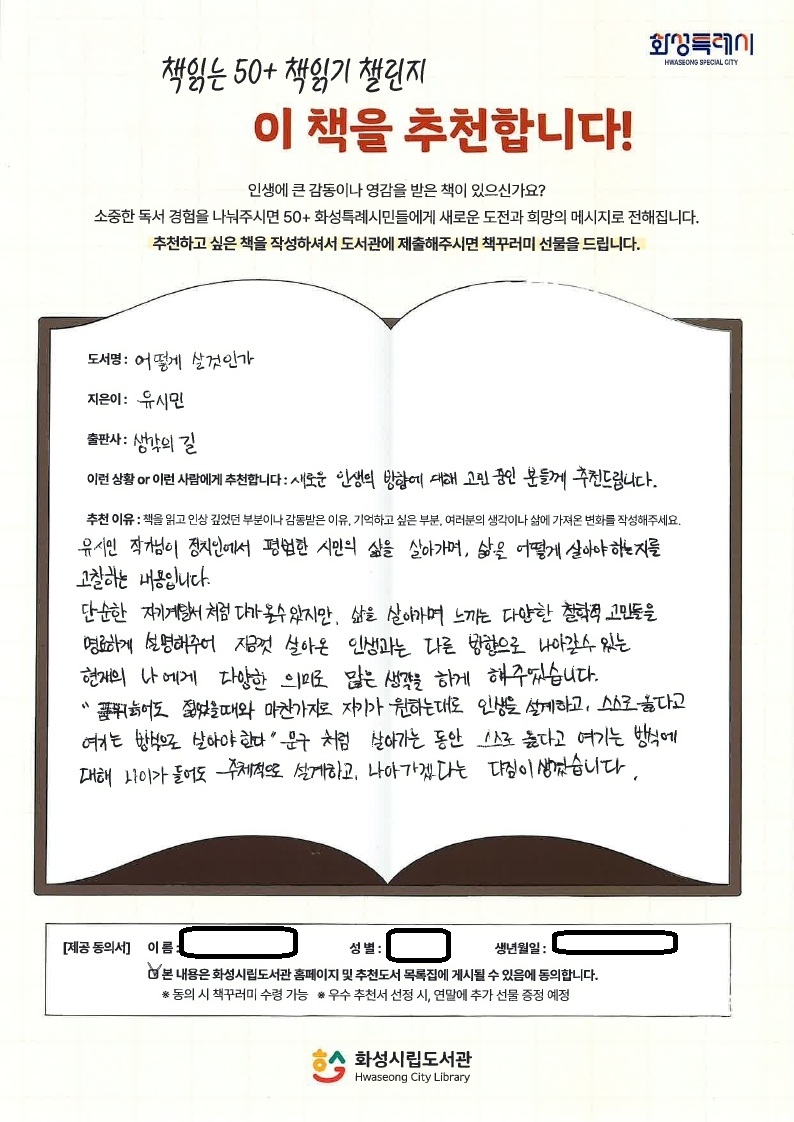 화성특례시
HWASEONG SPECIAL CITY
책읽는 50+ 책읽기 챌린지
이 책을 추천합니다!
인생에 큰 감동이나 영감을 받은 책이 있으신가요?
소중한 독서 경험을 나눠주시면 50+ 화성특례시민들에게 새로운 도전과 희망의 메시지로 전해집니다.
추천하고 싶은 책을 작성하셔서 도서관에 제출해주시면 책꾸러미 선물을 드립니다.
도서명 : 어떻게 살것인가
지은이 : 유시민
출판사 : 생각의 길
이런 상황 or 이런 사람에게 추천합니다 : 새로운 인생의 방향에 대해 고민 중인 분들께 추천드립니다.
추천 이유 : 책을 읽고 인상 깊었던 부분이나 감동받은 이유, 기억하고 싶은 부분, 여러분의 생각이나 삶에 가져온 변화를 작성해주세요.
유시민 작가님이 정치인에서 평범한 시민의 삶을 살아가며, 삶을 어떻게 살아야 하는지를
고찰하는 내용입니다.
단순한 자기계발서 처럼 다가올수 있지만, 삶을 살아가며 느끼는 다양한 철학적 고민들을
명료하게 설명해주어 지금껏 살아온 인생과는 다른 방향으로 나아갈수 있는
현재의 나에게 다양한 의미로 많은 생각을 하게 해주었습니다.
" 늙어도 젊었을때와 마찬가지로 자기가 원하는대로 인생을 설계하고, 스스로 옳다고
여기는 방식으로 살아야 한다" 문구 처럼 살아가는 동안 스스로 옳다고 여기는 방식에
대해 나이가 들어도 주체적으로 설계하고, 나아가겠다는 다짐이 생겼습니다.
[제공 동의서] 이 름 : 성 별 : 생년월일 :
본 내용은 화성시립도서관 홈페이지 및 추천도서 목록집에 게시될 수 있음에 동의합니다.
※ 동의 시 책꾸러미 수령 가능 ※ 우수 추천서 선정 시, 연말에 추가 선물 증정 예정
화성시립도서관
Hwaseong City Library